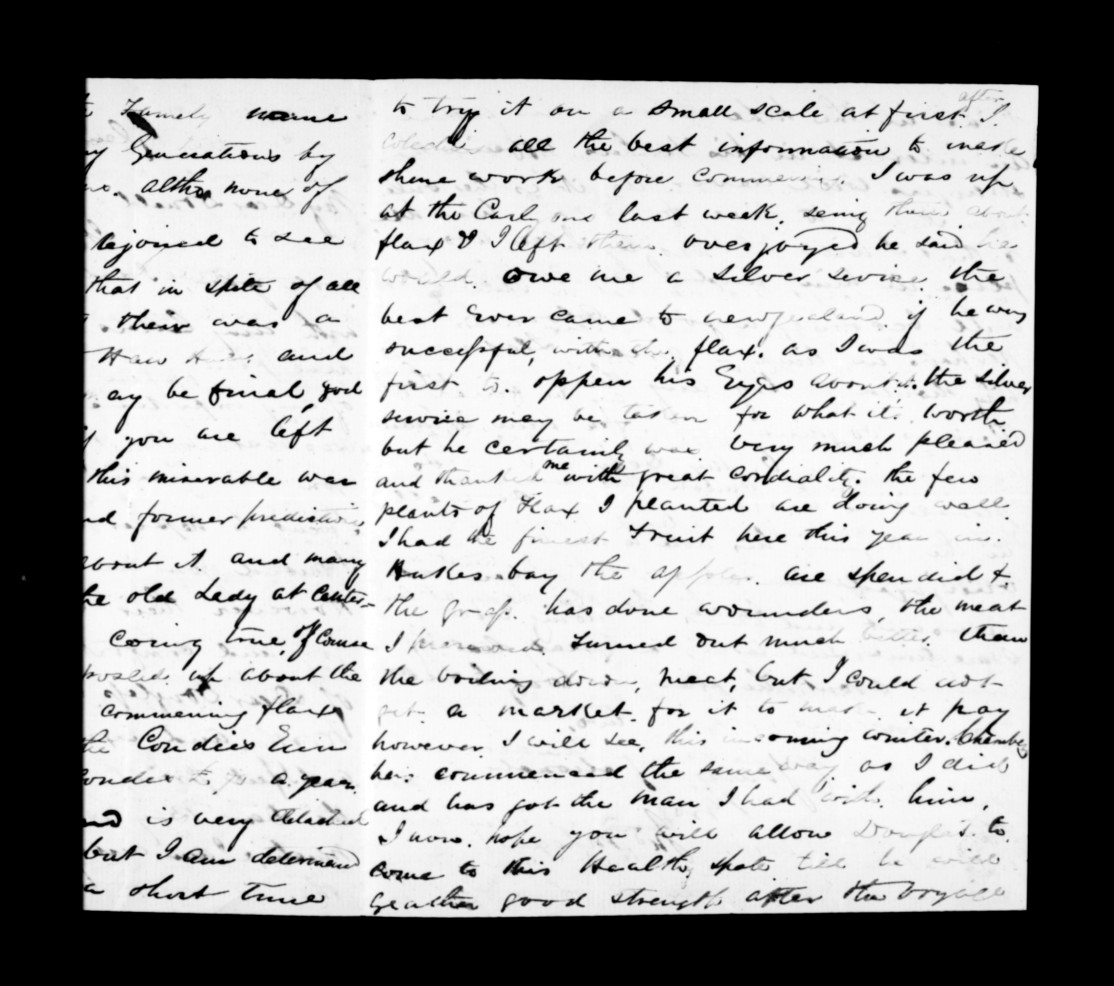 Family name
Generations by
altho none of
rejoiced to see
that in spite of all
their was a
Haw and
ay be final god
you are left
this miserable war
nd former predictions
about it and many
the old Lady at Center-
coming true, Of Course
up about the
commening flax
the Condies Erin
a year.
is very detached
but I am determined
a short time
to try it on a small scale at first. I after
all the best information to make
shure work before I was up
at the last week. seing
flax & I left them overjoyed he said he
would owe me a silver service the
best Ever came to newzealand if he was
successful, with the flax. as I was the
first to oppen his Eyes about it. the silver
service may be taken for what its worth
but he certainly was very much pleased
and thanked me with great cordiality. the few
plants of Flax I planted are doing well
I had the finest Fruit here this year in
Hawkes bay the apples are spendid &
the grass has done wounders, the meat
I turned out much better than
the boiling down, meat, but I could not
get a market for it to make it pay
however I will see, this incoming winter. Chambers
has commenced the same way as I did
and has got the man I had with him.
I now hope you will allow Douglas to
come to this Healthy spote till he will
geather good strength after the voyage